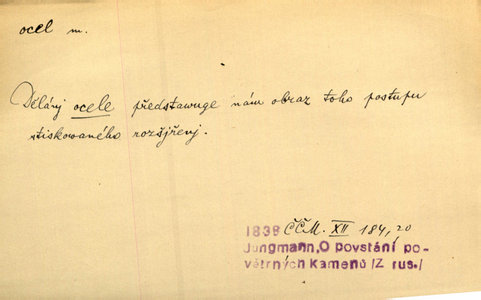 ocel m.
Dělánj ocele představuge nám obraz toho postupu
stiskowaného rozšjřenj.
1838 ČČM. XII 184,20
Jungmann,O povstání po-
větrných kamenů /Z rus./